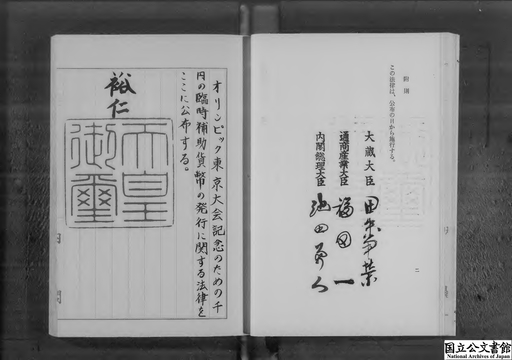 附則
この法律は、公布の日から施行する。
大蔵大臣 田中角榮
通商産業大臣 福田一
内閣総理大臣 池田勇人
二
オリンピック東京大会記念のための千
円の臨時補助貨幣の発行に関する法律を
ここに公布する。
裕仁
天皇
御璽
国立公文書館
National Archives of Japan